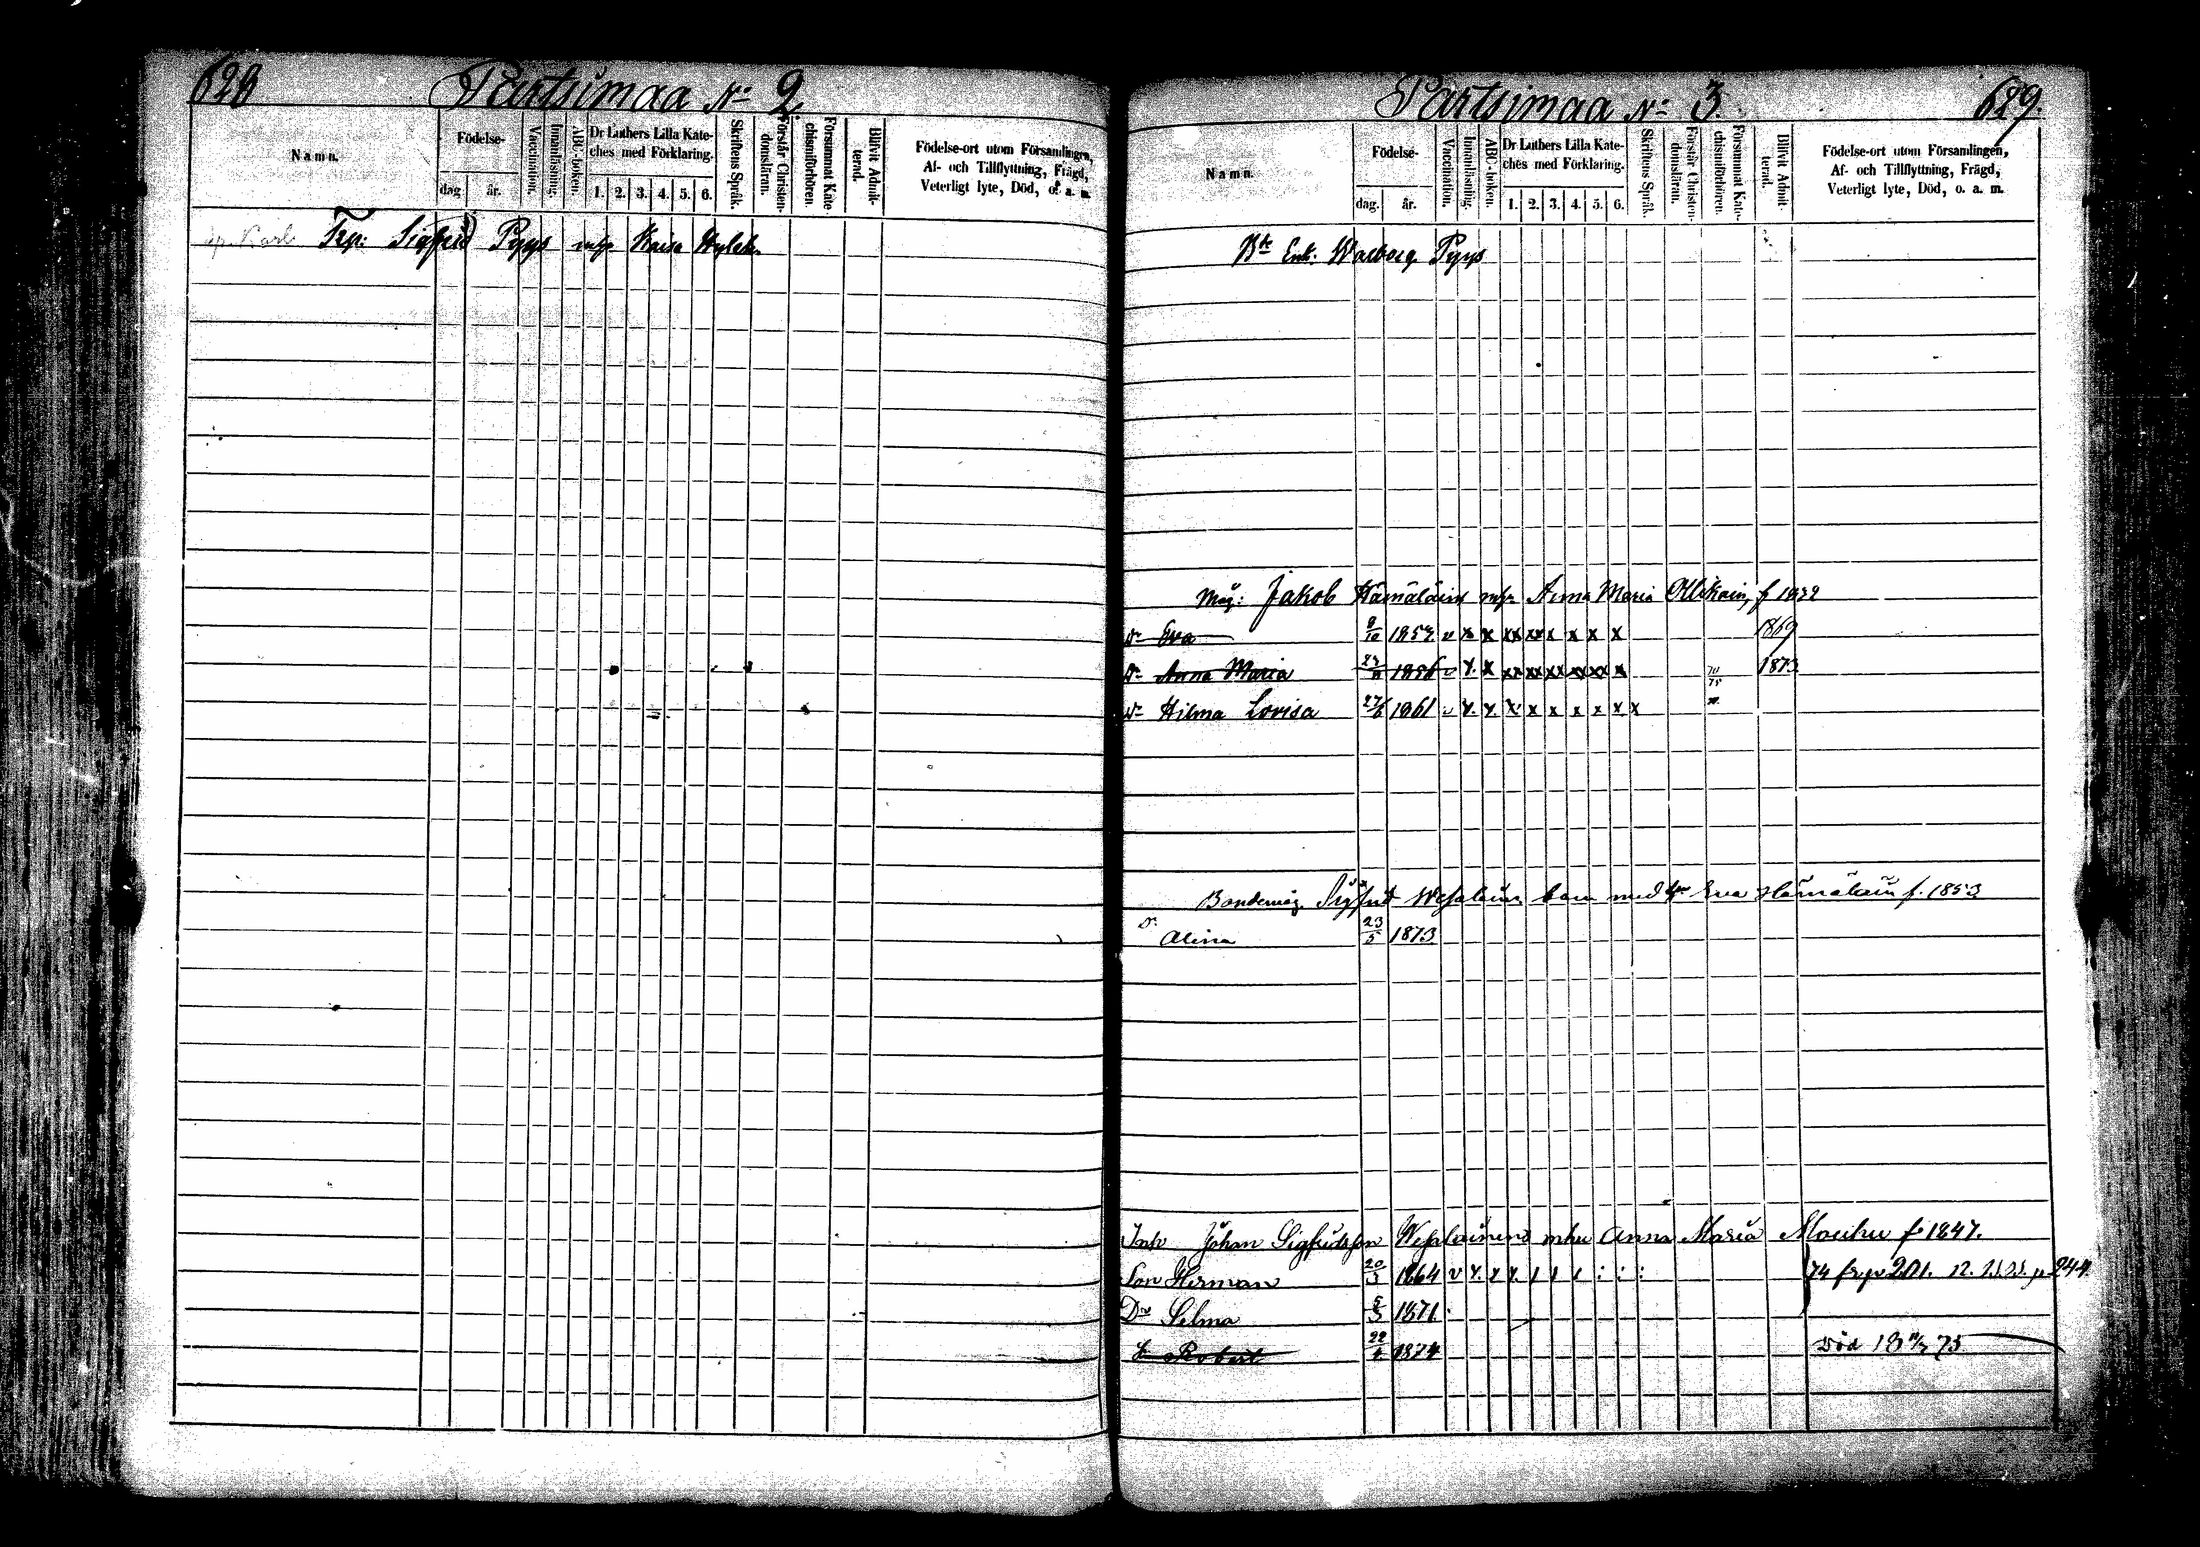 628 Partsimaa No 2.
Namn.
Födelse-
dag. år.
Vaccination.
Innanläsning.
ABC-boken.
Dr Luthers Lilla Kateches med Förklaring.
1. 2. 3. 4. 5. 6.
Skriftens Språk.
Förstår Christendomsläran.
Försummat Katechismiförhören.
Blifvit Admitterad.
Födelse-ort utom Församlingen,
Af- och Tillflyttning, Frägd,
Veterligt lyte, Död, o. a. m.
Karl Trp: Sigfrid Pyys mhu Kaisa
Partsimaa No 3. 629.
Namn.
Födelse-
dag. år.
Vaccination.
Innanläsning.
ABC-boken.
Dr Luthers Lilla Kateches med Förklaring.
1. 2. 3. 4. 5. 6.
Skriftens Språk.
Förstår Christendomsläran.
Försummat Katechismiförhören.
Blifvit Admitterad.
Födelse-ort utom Församlingen,
Af- och Tillflyttning, Frägd,
Veterligt lyte, Död, o. a. m.
Enk. Walborg Pyys
Måg: Jakob Hämäläin Anna Maria f
Dr Eva 1869
Dr Anna Maria 1856 v x x xx xx xx xx xx x 1873
Dr Hilma Lovisa 27/6 1861 v x x x x x x x x x
Bondemåg Sigfrid barn med Eva Hämäläin f. 1853
Dr Alina 23/5 1873
Johan Sigfridsson Anna Maria f 1847.
Son Herman 20/3 1864 74 fr. p 201. p 244.
Dr Selma 5/3 1871
S Robert 1874 Död 75